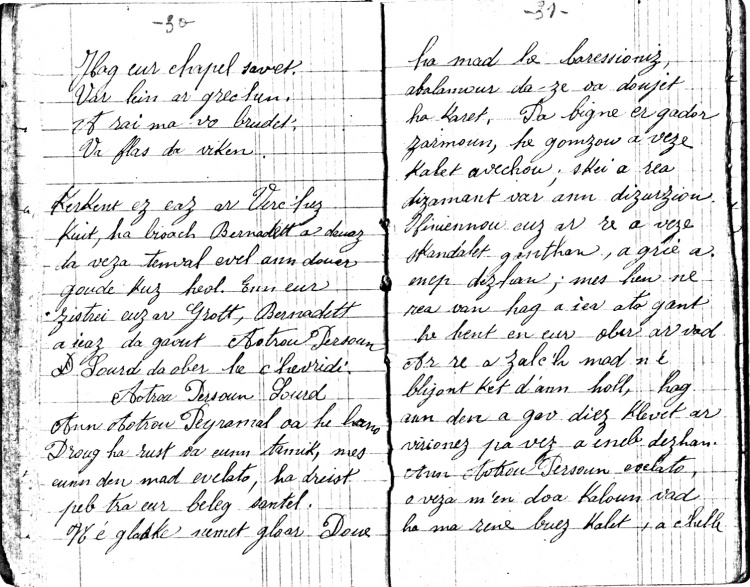 -30-
Hag eur chapel savet.
Var lein ar grec'hun.
A rai ma vo brudet.
Va flas da viken.
Kerkent ez eaz ar Verc'hez
Kuit, ha broach Bernadett a deuaz
da veza tenval evel ann douar
goude kuz heol. Enn eur
zistrei euz ar Grott, Bernadett
a ieaz da gaout Aotrou Persoun
Lourd da ober he c'hevridi.
Aotrou Persoun Lourd
Ann Aotrou Peyramal oa he hano
Droug ha rust oa eunn tamik, mes
eunn den mad evelato, ha dreist
peb tra eur beleg santel.
N'é glaske nemet gloar Doue
-31-
ha mad he baressioniz,
abalamour da-ze oa doujet
ha karet. Pa bigne er gador
zarmoun, he gomzou a veze
kalet avechou; skei a rea
dizamant var ann dizurziou.
Hiniennou euz ar re a veze
skandalet ganthan, a grie a
enep dezhan; mes hen ne
rea van hag a iea ato gant
he hent en eur ober ar vad
Ar re a zalc'h mad né
blijont ket d'ann holl, hag
ann den a gav diez klevet ar
virionez pa vez a eneb dezhan.
Ann Aotrou Persoun evelato,
a veza m'en doa kaloun vad
ha ma rene buez kalet, a c'helle